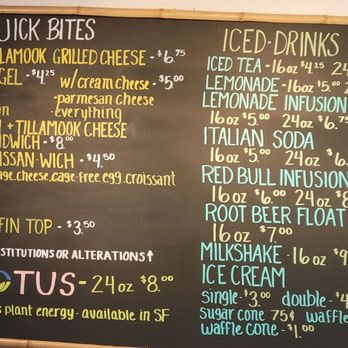 UICK BITES
LLAMOOK GRILLED CHEESE - $6.75
GEL - $4.25 w/cream cheese - $5.00
-parmesan cheese
-everything
+ TILLAMOOK CHEESE
DWICH - $8.00
ISSAN-WICH - $4.50
age.cheese.cage-free egg.croissant
FIN TOP - $3.50
STITUTIONS OR ALTERATIONS↑
TUS - 24oz $8.00
s plant energy - available in SF
ICED-DRINKS
ICED TEA - 16oz $4.25 24
LEMONADE - 16oz $5.00
LEMONADE INFUSION
16oz $5.00 24oz $6.
ITALIAN SODA
16oz $5.00 24oz $6.
RED BULL INFUSION
16oz $6.00 24oz $8
ROOT BEER FLOAT
16oz $7.00
MILKSHAKE - 16oz $
ICE CREAM
single - $3.00 double - $4
sugar cone 75¢ waffle
waffle cone - $1.00